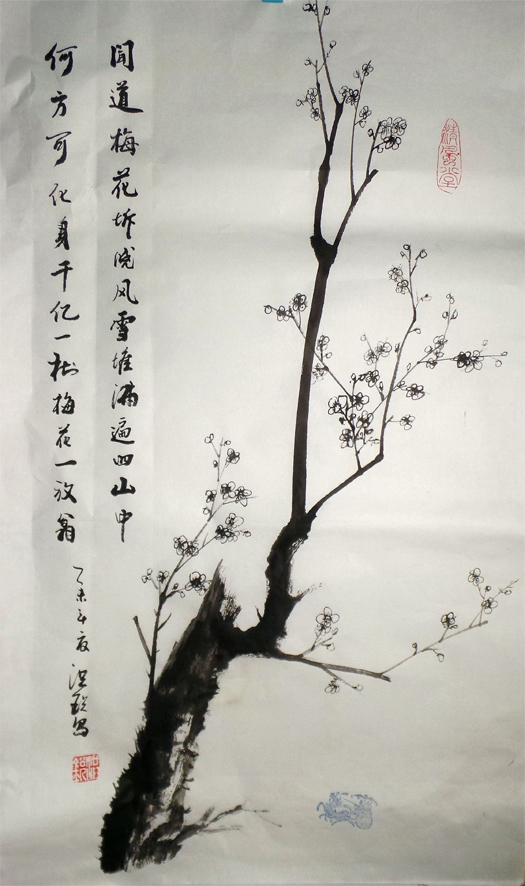 闻道梅花坼晓风雪堆满遍四山中
何方可化身千亿一树梅花一放翁
乙未年